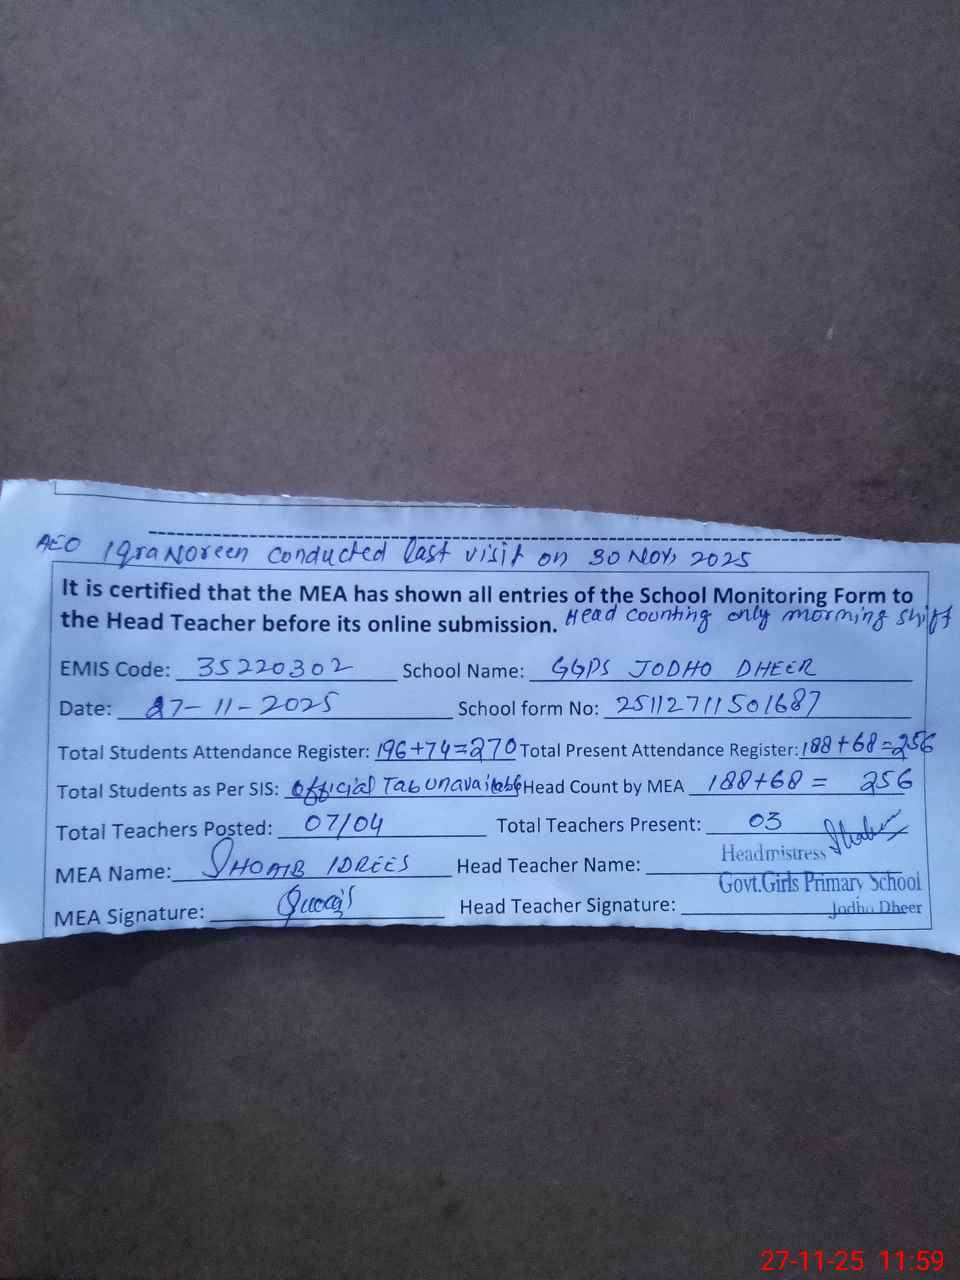 AEO Iqra Noreen conducted last visit on 30 Nov, 2025
It is certified that the MEA has shown all entries of the School Monitoring Form to
the Head Teacher before its online submission. Head counting only morning shift
EMIS Code: 35220302 School Name: GGPS JODHO DHEER
Date: 27-11-2025 School form No: 25112711501687
Total Students Attendance Register: 196+74=270 Total Present Attendance Register: 188+68=256
Total Students as Per SIS: Official Tab unavailable Head Count by MEA 188+68 = 256
Total Teachers Posted: 07/04 Total Teachers Present: 03
MEA Name: SHOAIB IDREES Head Teacher Name: Headmistress
Govt.Girls Primary School
MEA Signature: Head Teacher Signature: Jodhu Dheer
27-11-25 11:59